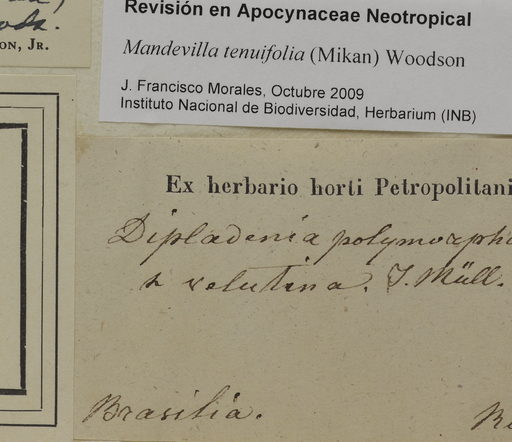 ON, JR.
Revisión en Apocynaceae Neotropical
Mandevilla tenuifolia (Mikan) Woodson
J. Francisco Morales, Octubre 2009
Instituto Nacional de Biodiversidad, Herbarium (INB)
Ex herbario horti Petropolitani
Dipladenia polymorpha
velutina. J. Müll.
Brasilia.